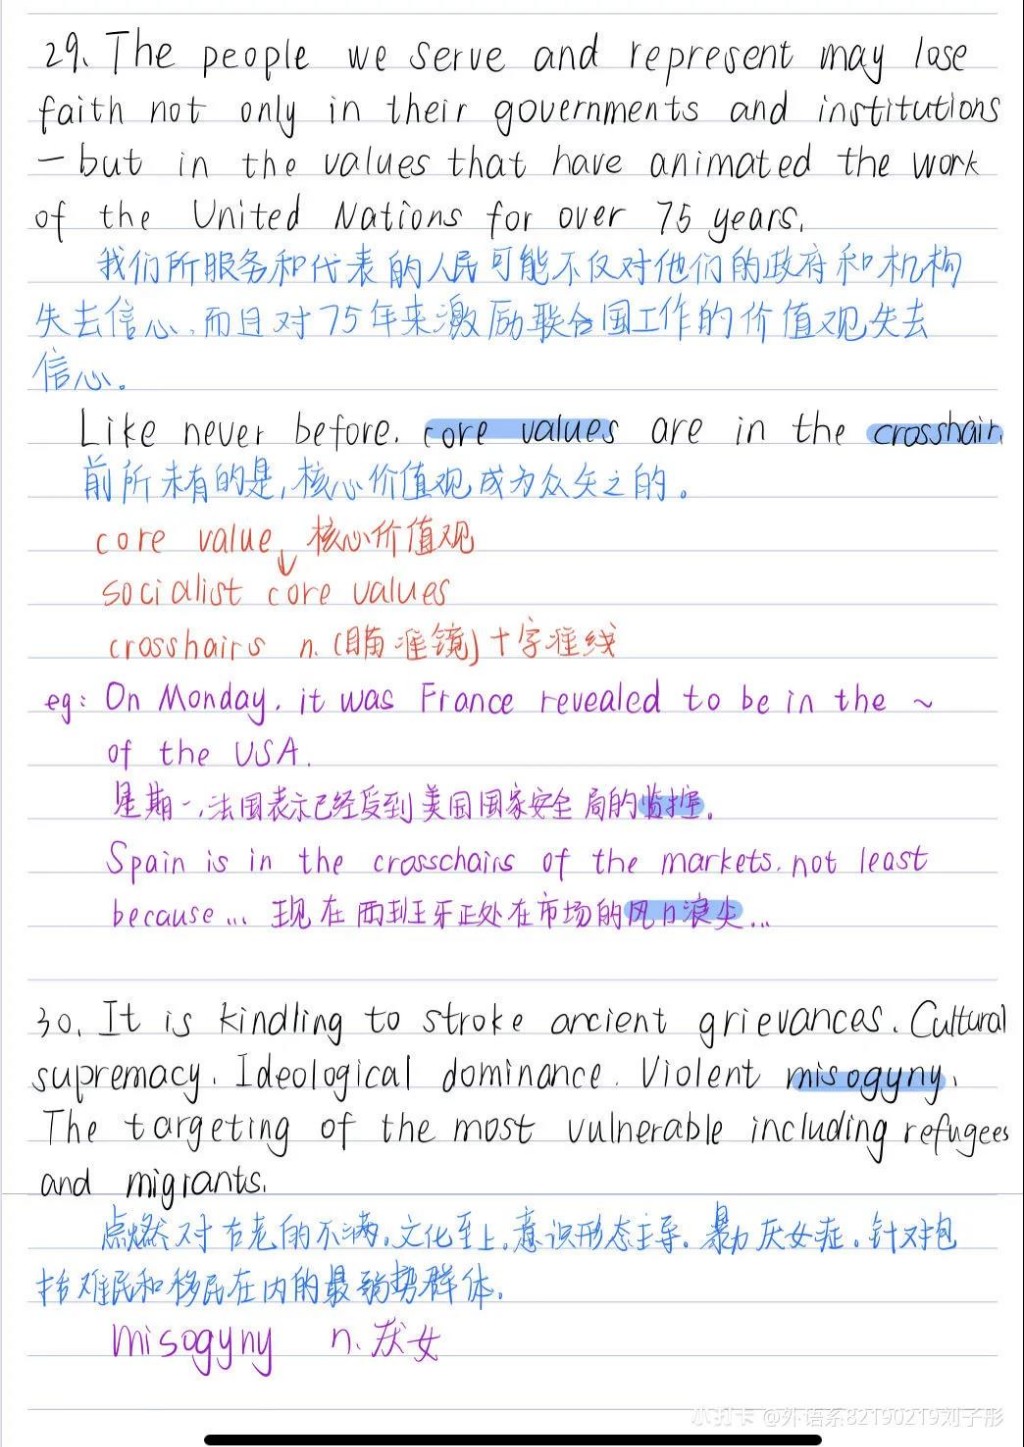 29、The people we serve and represent may lose
faith not only in their governments and institutions
—but in the values that have animated the work
of the United Nations for over 75 years.
我们所服务和代表的人民可能不仅对他们的政府和机构
失去信心,而且对75年来激励联合国工作的价值观失去
信心。
Like never before, core values are in the crosshair.
前所未有的是,核心价值观成为众矢之的。
core value 核心价值观
↓
socialist core values
crosshairs n. (瞄准镜)十字准线
eg: On Monday, it was France revealed to be in the ~
of the USA.
星期一,法国表示已经受到美国国家安全局的监控。
Spain is in the crosschairs of the markets, not least
because... 现在西班牙正处在市场的风口浪尖...
30. It is kindling to stroke ancient grievances. Cultural
supremacy. Ideological dominance. Violent misogyny.
The targeting of the most vulnerable including refugees
and migrants.
点燃对古老的不满,文化至上,意识形态主导。暴力厌女症。针对包
括难民和移民在内的最弱势群体。
misogyny n. 厌女
小打卡 @外语系82190219刘子彤